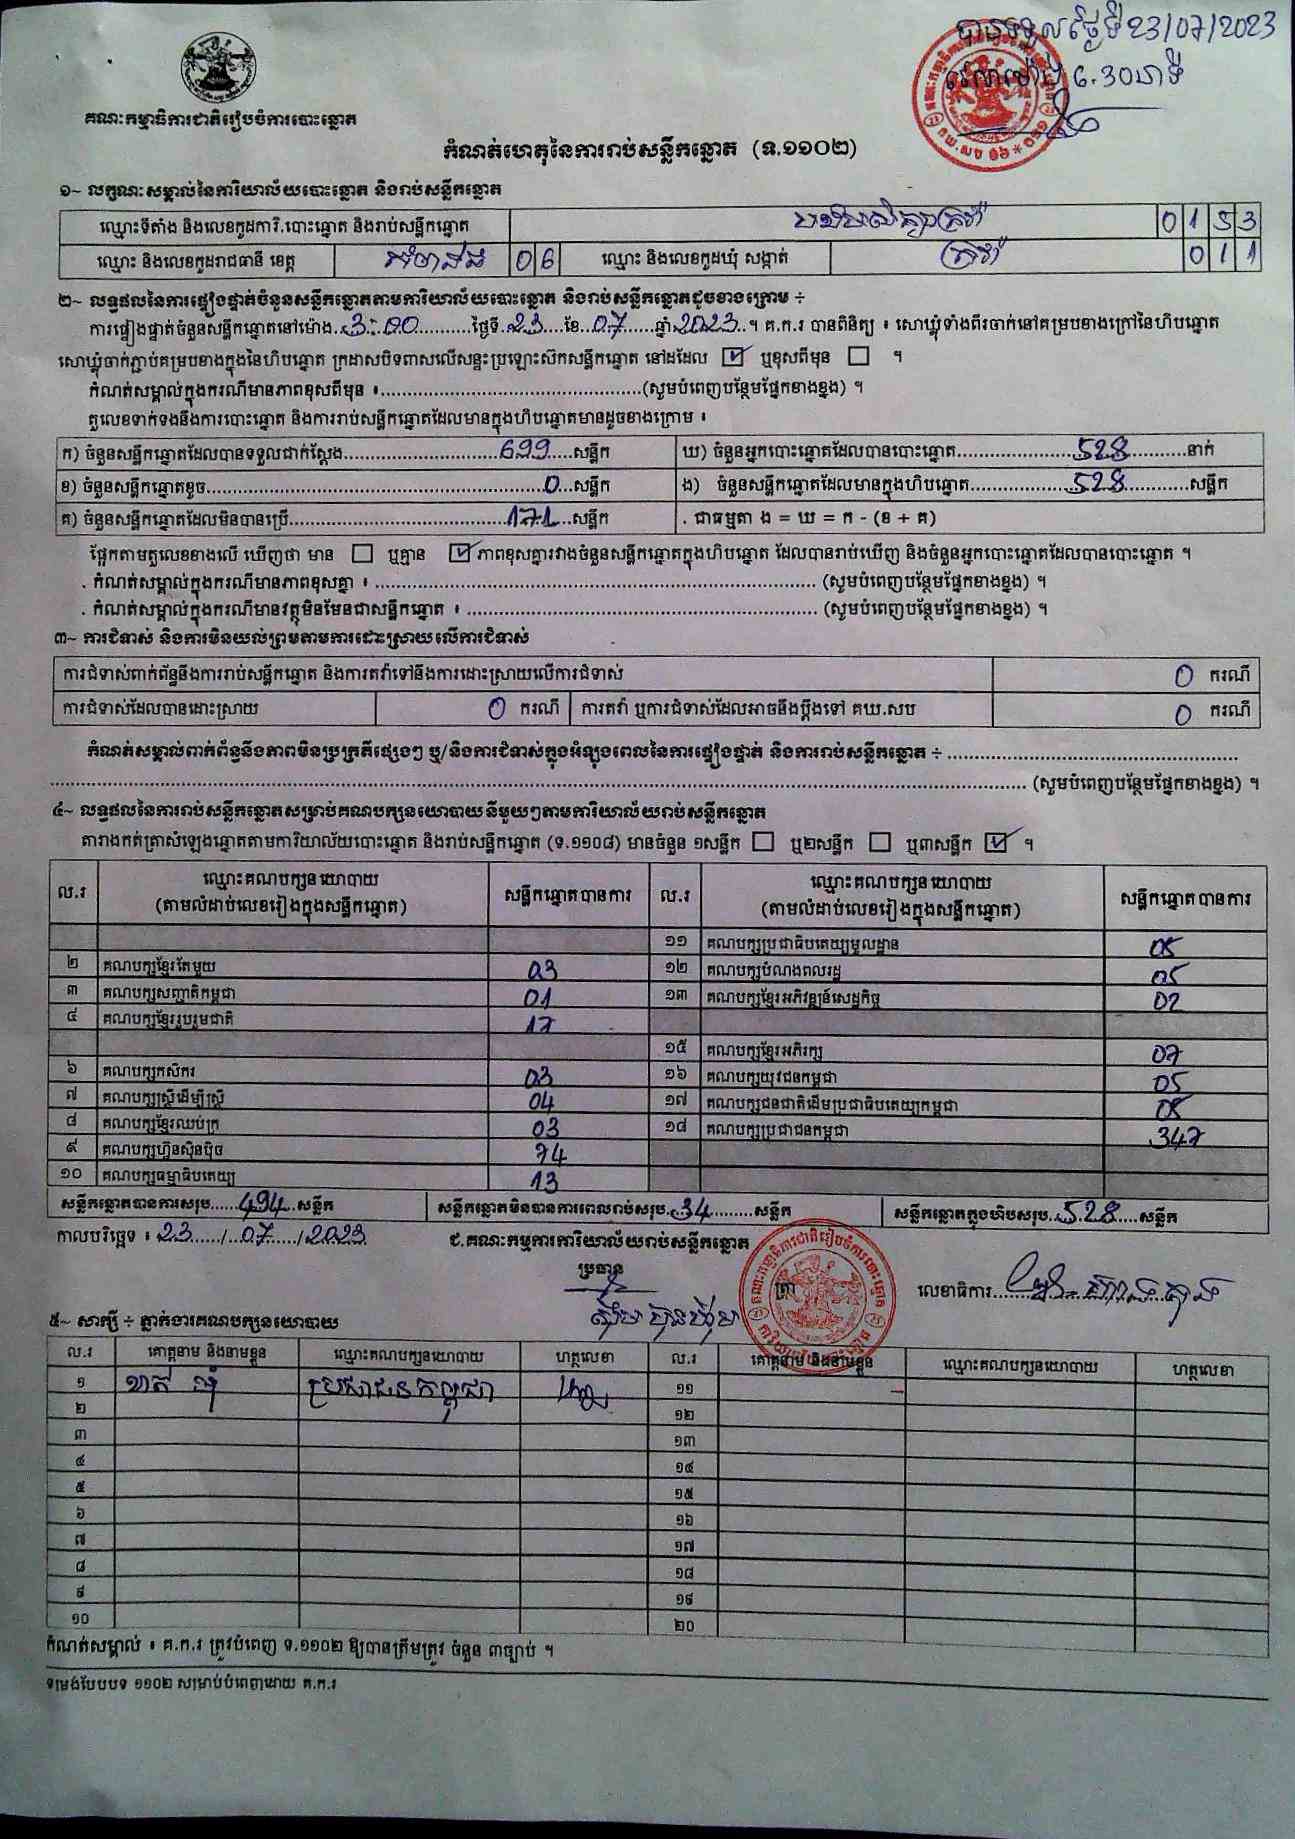 បានទទួលថ្ងៃទី23/07/2023
វេលាម៉ោង 6.30នាទី
គណៈកម្មាធិការជាតិរៀបចំការបោះឆ្នោត
កំណត់ហេតុនៃការរាប់សន្លឹកឆ្នោត (ទ.១១០២)
១~ លក្ខណៈសម្គាល់នៃការិយាល័យបោះឆ្នោត និងរាប់សន្លឹកឆ្នោត
ឈ្មោះទីតាំង និងលេខកូដការិ.បោះឆ្នោត និងរាប់សន្លឹកឆ្នោត 0153
ឈ្មោះ និងលេខកូដរាជធានី ខេត្ត កំពង់ធំ 06 ឈ្មោះ និងលេខកូដឃុំ សង្កាត់ 011
២~ លទ្ធផលនៃការផ្ទៀងផ្ទាត់ចំនួនសន្លឹកឆ្នោតតាមការិយាល័យបោះឆ្នោត និងរាប់សន្លឹកឆ្នោតដូចខាងក្រោម ÷
ការផ្ទៀងផ្ទាត់ចំនួនសន្លឹកឆ្នោតនៅម៉ោង.3:00..........ថ្ងៃទី.23.....ខែ.07......ឆ្នាំ2023..។ គ.ក.រ បានពិនិត្យ ៖ សោឃ្លុំទាំងពីរចាក់នៅគម្របខាងក្រៅនៃហិបឆ្នោត
សោឃ្លុំចាក់ភ្ជាប់គម្របខាងក្នុងនៃហិបឆ្នោត ក្រដាសបិទពាសលើសន្ទះប្រឡោះស៊កសន្លឹកឆ្នោត នៅដដែល ☑ ឬខុសពីមុន ☐ ។
កំណត់សម្គាល់ក្នុងករណីមានភាពខុសពីមុន ៖..................................................(សូមបំពេញបន្ថែមផ្នែកខាងខ្នង) ។
តួលេខទាក់ទងនឹងការបោះឆ្នោត និងការរាប់សន្លឹកឆ្នោតដែលមានក្នុងហិបឆ្នោតមានដូចខាងក្រោម ៖
ក) ចំនួនសន្លឹកឆ្នោតដែលបានទទួលជាក់ស្តែង..........699....សន្លឹក ឃ) ចំនួនអ្នកបោះឆ្នោតដែលបានបោះឆ្នោត..........528..........នាក់
ខ) ចំនួនសន្លឹកឆ្នោតខូច..........0...សន្លឹក ង) ចំនួនសន្លឹកឆ្នោតដែលមានក្នុងហិបឆ្នោត..........528..........សន្លឹក
គ) ចំនួនសន្លឹកឆ្នោតដែលមិនបានប្រើ..........171...សន្លឹក . ជាធម្មតា ង = ឃ = ក - (ខ + គ)
ផ្អែកតាមតួលេខខាងលើ ឃើញថា មាន ☐ ឬគ្មាន ☑ ភាពខុសគ្នារវាងចំនួនសន្លឹកឆ្នោតក្នុងហិបឆ្នោត ដែលបានរាប់ឃើញ និងចំនួនអ្នកបោះឆ្នោតដែលបានបោះឆ្នោត ។
. កំណត់សម្គាល់ក្នុងករណីមានភាពខុសគ្នា ៖ .................................................. (សូមបំពេញបន្ថែមផ្នែកខាងខ្នង) ។
. កំណត់សម្គាល់ក្នុងករណីមានវត្ថុមិនមែនជាសន្លឹកឆ្នោត ៖ .................................................. (សូមបំពេញបន្ថែមផ្នែកខាងខ្នង) ។
៣~ ការជំទាស់ និងការមិនយល់ព្រមតាមការដោះស្រាយលើការជំទាស់
ការជំទាស់ពាក់ព័ន្ធនឹងការរាប់សន្លឹកឆ្នោត និងការតវ៉ាទៅនឹងការដោះស្រាយលើការជំទាស់ 0 ករណី
ការជំទាស់ដែលបានដោះស្រាយ 0 ករណី ការតវ៉ា ឬការជំទាស់ដែលអាចនឹងប្តឹងទៅ គឃ.សប 0 ករណី
កំណត់សម្គាល់ពាក់ព័ន្ធនឹងភាពមិនប្រក្រតីផ្សេងៗ ឬ/និងការជំទាស់ក្នុងអំឡុងពេលនៃការផ្ទៀងផ្ទាត់ និងការរាប់សន្លឹកឆ្នោត ÷ ..................................................
.................................................. (សូមបំពេញបន្ថែមផ្នែកខាងខ្នង) ។
៤~ លទ្ធផលនៃការរាប់សន្លឹកឆ្នោតសម្រាប់គណបក្សនយោបាយនីមួយៗតាមការិយាល័យរាប់សន្លឹកឆ្នោត
តារាងកត់ត្រាសំឡេងឆ្នោតតាមការិយាល័យបោះឆ្នោត និងរាប់សន្លឹកឆ្នោត (ទ.១១០៨) មានចំនួន ១សន្លឹក ☐ ឬ២សន្លឹក ☐ ឬ៣សន្លឹក ☑ ។
ល.រ ឈ្មោះគណបក្សនយោបាយ (តាមលំដាប់លេខរៀងក្នុងសន្លឹកឆ្នោត) សន្លឹកឆ្នោតបានការ ល.រ ឈ្មោះគណបក្សនយោបាយ (តាមលំដាប់លេខរៀងក្នុងសន្លឹកឆ្នោត) សន្លឹកឆ្នោតបានការ
១១ គណបក្សប្រជាធិបតេយ្យមូលដ្ឋាន 05
២ គណបក្សខ្មែរតែមួយ 03 ១២ គណបក្សបំណងពលរដ្ឋ 05
៣ គណបក្សសញ្ជាតិកម្ពុជា 01 ១៣ គណបក្សខ្មែរអភិវឌ្ឍន៍សេដ្ឋកិច្ច 02
៤ គណបក្សខ្មែររួបរួមជាតិ 17
១៥ គណបក្សខ្មែរអភិរក្ស 07
៦ គណបក្សកសិករ 03 ១៦ គណបក្សយុវជនកម្ពុជា 05
៧ គណបក្សស្ត្រីដើម្បីស្ត្រី 04 ១៧ គណបក្សជនជាតិដើមប្រជាធិបតេយ្យកម្ពុជា 05
៨ គណបក្សខ្មែរឈប់ក្រ 03 ១៨ គណបក្សប្រជាជនកម្ពុជា 347
៩ គណបក្សហ៊្វុនស៊ិនប៉ិច 74
១០ គណបក្សធម្មាធិបតេយ្យ 13
សន្លឹកឆ្នោតបានការសរុប......494...សន្លឹក សន្លឹកឆ្នោតមិនបានការពេលរាប់សរុប.34.........សន្លឹក សន្លឹកឆ្នោតក្នុងហិបសរុប..528.....សន្លឹក
កាលបរិច្ឆេទ ៖ 23....../..07....../..2023 ជ.គណៈកម្មការការិយាល័យរាប់សន្លឹកឆ្នោត
ប្រធាន ត្រា លេខាធិការ
៥~ សាក្សី ÷ ភ្នាក់ងារគណបក្សនយោបាយ
ល.រ គោត្តនាម និងនាមខ្លួន ឈ្មោះគណបក្សនយោបាយ ហត្ថលេខា ល.រ គោត្តនាម និងនាមខ្លួន ឈ្មោះគណបក្សនយោបាយ ហត្ថលេខា
១ ប្រជាជនកម្ពុជា ១១
២ ១២
៣ ១៣
៤ ១៤
៥ ១៥
៦ ១៦
៧ ១៧
៨ ១៨
៩ ១៩
១០ ២០
កំណត់សម្គាល់ ៖ គ.ក.រ ត្រូវបំពេញ ទ.១១០២ ឱ្យបានត្រឹមត្រូវ ចំនួន ៣ច្បាប់ ។
ទម្រង់បែបបទ ១១០២ សម្រាប់បំពេញដោយ គ.ក.រ